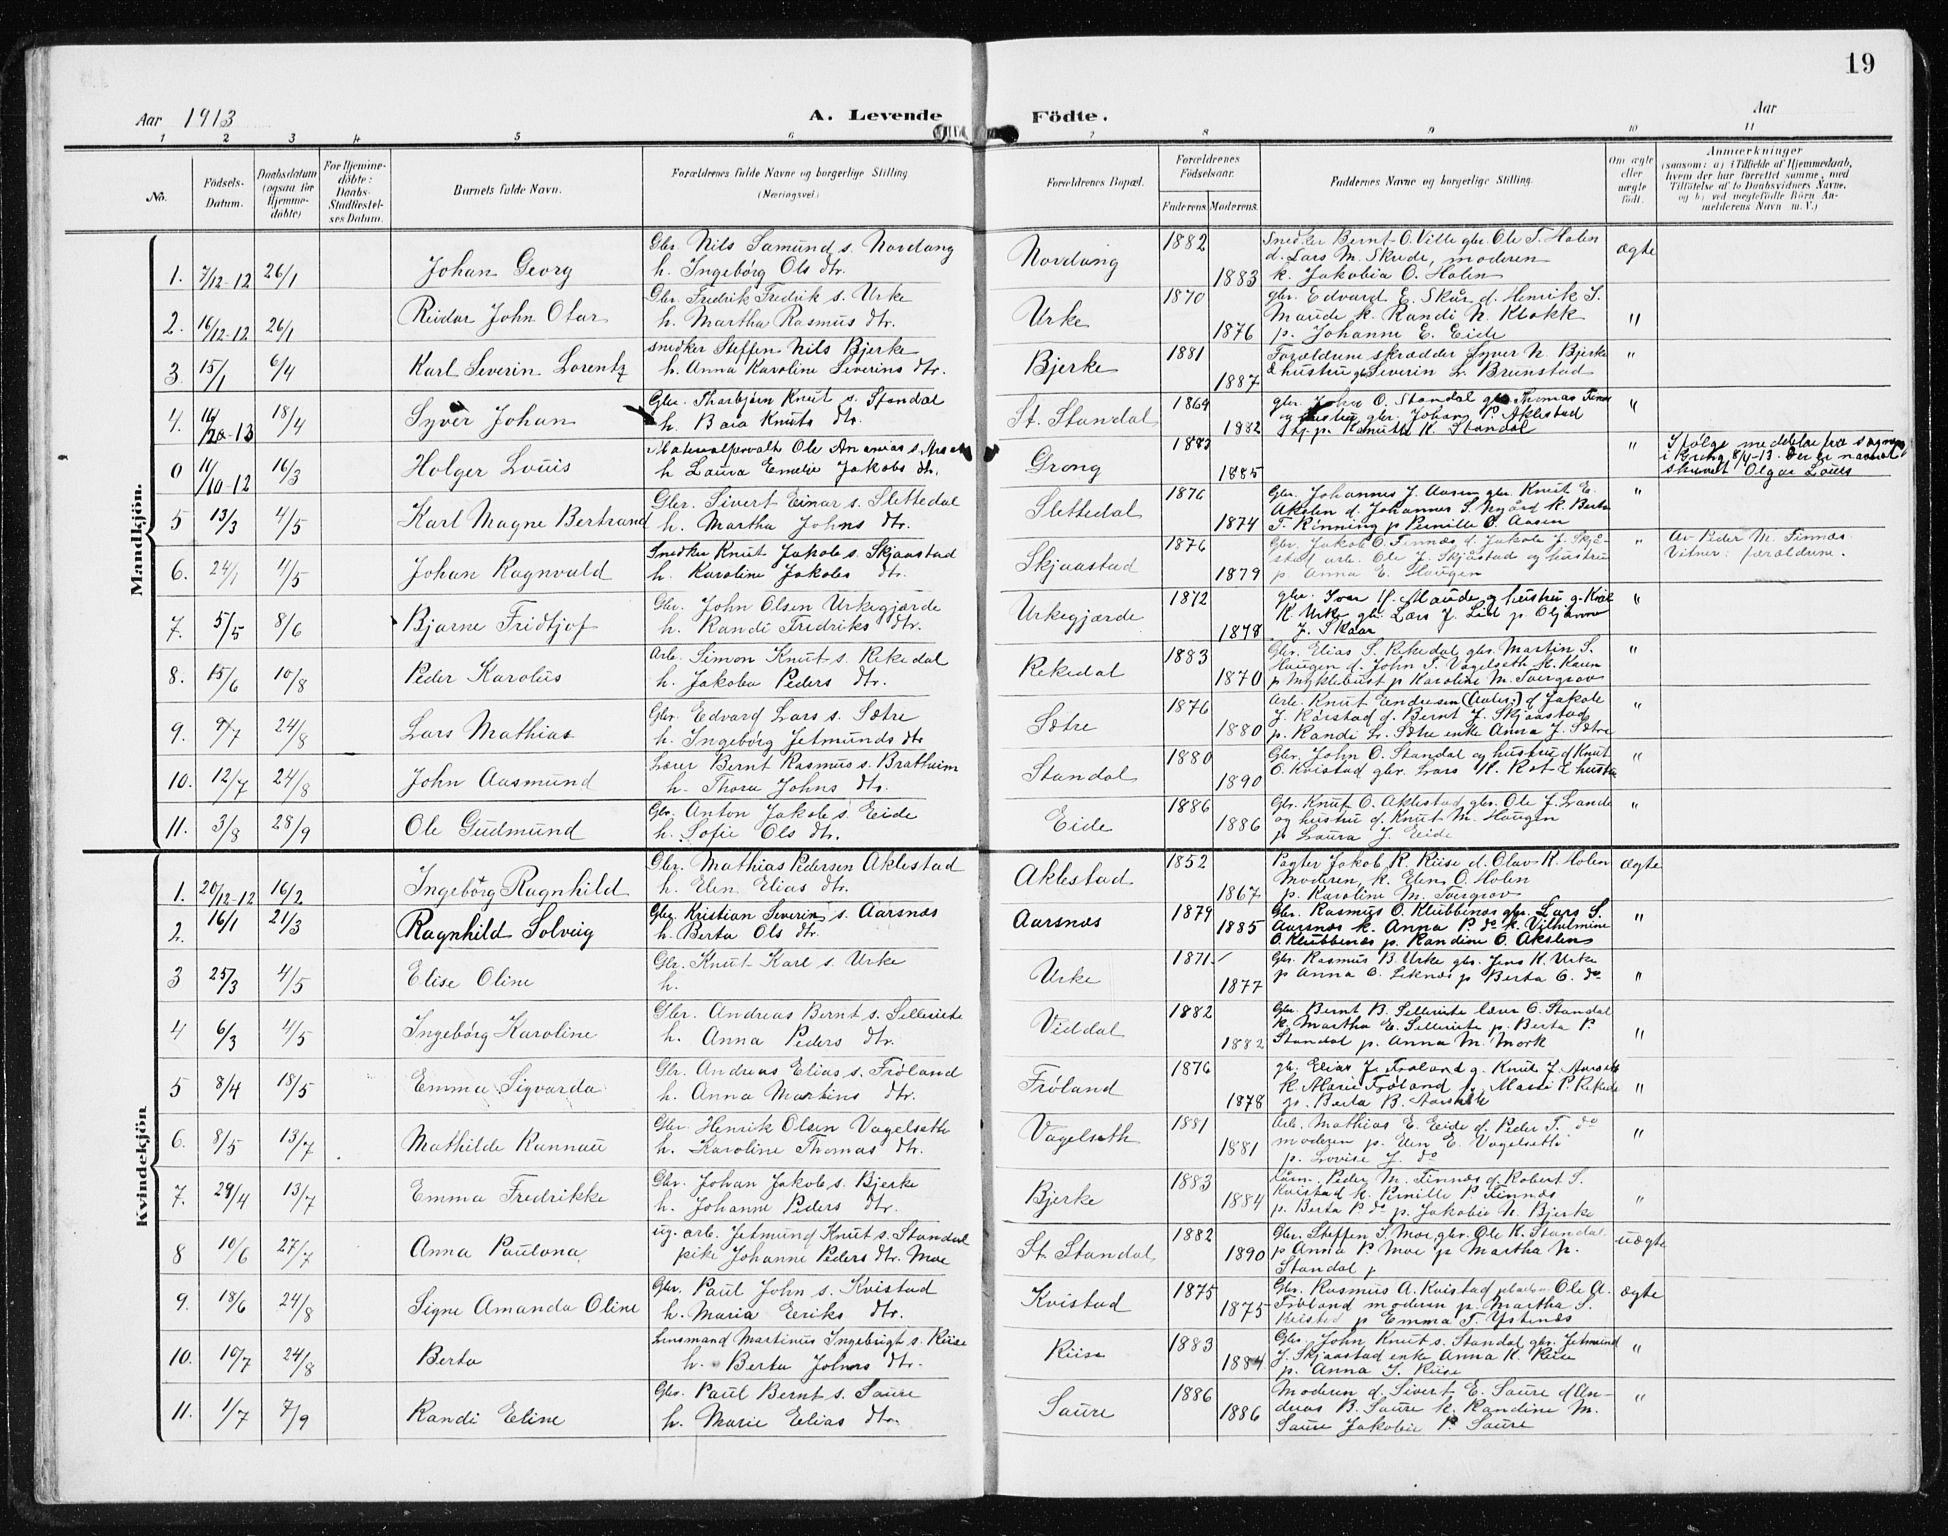 19
Aar 1913
A. Levende Födte.
Aar
1 2 3 4 5 6 7 8 9 10 11
No.
Födsels-Datum.
Daabsdatum (ogsaa for Hjemme-döbte)
For Hjemme-döbte: Daabs-Stadfæstel-ses Datum.
Barnets fulde Navn.
Forældrenes fulde Navne og borgerlige Stilling (Næringsvei.)
Forældrenes Bopæl.
Forældrenes Födselsaar.
Faderens. Moderens.
Faddernes Navne og borgerlige Stilling.
Om ægte eller uægte födt.
Anmærkninger
(saasom: a) i Tilfælde af Hjemmedaab, hvem der har forrettet samme, med Tilföielse af to Daabsvidners Navne, og b) ved uægtefödte Börn An-melderens Navn m. V.)
Mandkjön.
1. 7/12-12 26/1 Johan Georg
Gbr. Nils Samund s. Nordang
h. Ingebörg Ols dtr.
Nordang 1882 1883
Snedker Bernt O. Ville gbr. Ole T. Holen
d. Lars M. Skrede, moderen
k. Jakobia O. Holen
ægte
2. 16/12-12 26/1 Reidar John Olar
Gbr. Fredrik Fredrik s. Urke
h. Martha Rasmus dtr.
Urke 1870 1876
gbr. Edvard E. Skår d. Henrik S.
Maude k. Randi N. Klokk
p. Johanne E. Eide
"
3. 15/1 6/4 Karl Severin Lorentz
snedker Steffen Nils Bjerke
h. Anna Karoline Severins dtr.
Bjerke 1881 1887
Forældrene skrædder Syver N. Bjerke
& hustru gbr Severin L. Brunstad
"
4. 18/4 Syver Johan
Gbr. Thorbjørn Knut s. Standal
h. Knuts dtr.
St. Standal 1864 1882
gbr. John O. Standal gbr Thomas
og hustru gbr. Johan P. Aklestad
p. K. Standal
"
0 11/10-12 16/3 Holger Louis
Materialforvalt. Ole Ananias s.
h Laura Emelie Jakobs dtr.
Grong 1883 1885
"
Ifølge meddelelse fra
i Grong 8/4-13. Der er navnet
skrevet Olgar Louis
5 13/3 4/5 Karl Magne Bertrand
Gbr. Sivert Eimar s. Slettedal
h. Martha Johns dtr.
Slettedal 1876 1874
Gbr. Johannes J. Aasen gbr. Knut E.
Akslen d. Johannes S. Ngård k. Berta
T. Rönning p Pernille O. Aasen
"
6. 24/1 4/5 Johan Ragnvald
Snedker Knut Jakob s. Skjaastad
h. Karoline Jakobs dtr.
Skjaastad 1876 1879
Gbr. Jakob O Finnæs d. Jakob J. Skjå-
stad arb. Ole J. Skjåstad og hustru
p. Anna E. Haugen
"
Av Peder M. Finnæs.
Vitner: forældrene.
7. 5/5 8/6 Bjarne Fridtjof
Gbr. John Olsen Urkegjærde
h. Randi Fredriks dtr.
Urkegjærde 1872 1878
gbr. Ivar H. Maude og hustru g. Karl
K. Urke gbr. Lars J. Lid p. Oljanna
J. Skaar
"
8. 15/6 10/8 Peder Karolus
Arb. Simon Knut s. Rekedal
h. Jakoba Peders dtr.
Rekedal 1883 1870
Gbr. Elias S. Rekedal gbr. Martin S.
Haugen d. John T. Vagelseth k. Karen
p Myklebust p Karoline M. Tvergrov
"
9. 9/7 24/8 Lars Mathias
Gbr. Edvard Lars s. Sætre
h. Ingebörg Jetmunds dtr
Sætre 1876 1880
Arb. Knut Endresen d Jakob
J. Rörstad d. Bernt J. Skjaastad
p. Randi L. Sætre enke Anna J. Sætre
"
10. 12/7 24/8 John Aasmund
Lærer Bernt Rasmus s. Bratheim
h. Thora Johns dtr.
Standal 1880 1890
Gbr. John O. Standal og hustru d Knut
O. Kvistad gbr. Lars H. Rot & hustru
"
11. 3/8 28/9 Ole Gudmund
Gbr. Anton Jakob s. Eide
h. Sofie Ols dtr.
Eide 1886 1886
Gbr. Knut O. Aklestad gbr. Ole J. Lande
og hustru d. Knut M. Haugen
p Laura J. Eide
"
Kvindekjön
1. 20/12-12 16/2 Ingebörg Ragnhild
Gbr. Mathias Pedersen Aklestad
h. Elen Elias dtr.
Aklestad 1852 1867
Pagter Jakob R. Riise d. Olav K. Holen
Moderen, k. Elen O. Holen
p. Karoline M. Tvergrov
ægte
2. 16/1 21/3 Ragnhild Solveig
Gbr. Kristian Severin s. Aarsnæs
h. Berta Ols dtr.
Aarsnæs 1879 1885
Gbr. Rasmus O. Klubbenæs gbr. Lars S.
Aarsnæs k. Anna P. do k. Vilhelmine
O. Klubbenæs p. Randine O. Akslen
"
3 25/3 4/5 Elise Oline
Gbr. Knut Karl s. Urke
h.
Urke 1871 1877
Gbr. Rasmus B. Urke gbr. Jens K. Urke
p Anna O. Leknæs p Berta O. do
"
4 6/3 4/5 Ingebörg Karoline
Gbr. Andreas Bernt s. Sellereite
h. Anna Peders dtr.
Viddal 1882 1882
Gbr. Bernt B. Sellereite lærer O. Standal
k. Martha E. Sellereite p. Berta P.
Standal p. Anna M. Mork
"
5 8/4 18/5 Emma Sigvarda
Gbr. Andreas Elias s. Fröland
h. Anna Martins dtr.
Fröland 1876 1878
gb. Elias J. Fröland g. Knut J. Aarseth
k. Marie Fröland p. P. Rekedal
p. Berta B. Aarseth
"
6. 8/5 13/7 Mathilde Rannau
Gbr. Henrik Olsen Vagelseth
h. Karoline Thomas dtr.
Vagelseth 1881 1881
Arb. Mathias E. Eide d. Peder T. do
moderen p. Elen E. Vagelseth
p. Lovise J. do
"
7. 29/4 13/7 Emma Fredrikke
Gbr. Johan Jakob s. Bjerke
h. Johanne Peders dtr.
Bjerke 1883 1884
Peder M. Finnæs d. Robert S.
Kvistad k. Pernille P. Finnæs
p. Berta P. do p. Jakobie N. Bjerke
"
8 10/6 27/7 Anna Paulona
ug. arb. Jetmund Knut s. Standal
pike Johanne Peders dtr. Moe
St. Standal 1882 1890
Gbr. Steffen S. Moe gbr. Ole K. Standal
p Anna P Moe p Martha N.
Standal p
uægte
9. 18/6 24/8 Signe Amanda Oline
Gbr. Paul John s. Kvistad
h. Maria Eriks dtr.
Kvistad 1875 1875
Gbr. Rasmus A. Kvistad Ole A.
Fröland moderen p. Martha S.
Kvistad p Emma T. Ystenæs
ægte
10. 10/7 24/8 Berta
Lensmand Martinus Ingebrigt s. Riise
h. Berta Johns dtr.
Riise 1883 1884
Gbr. John Knut s. Standal gbr. Jetmund
J. Skjaastad enke Anna K. Riise
p. Anna S. Riise
"
11. 1/7 7/9 Randi Eline
Gbr. Paul Bernt s. Saure
h. Marie Elias dtr.
Saure 1886 1886
Moderen d. Sivert E. Saure d An-
dreas B. Saure k. Randine M.
Saure Jakobie P. Saure
"